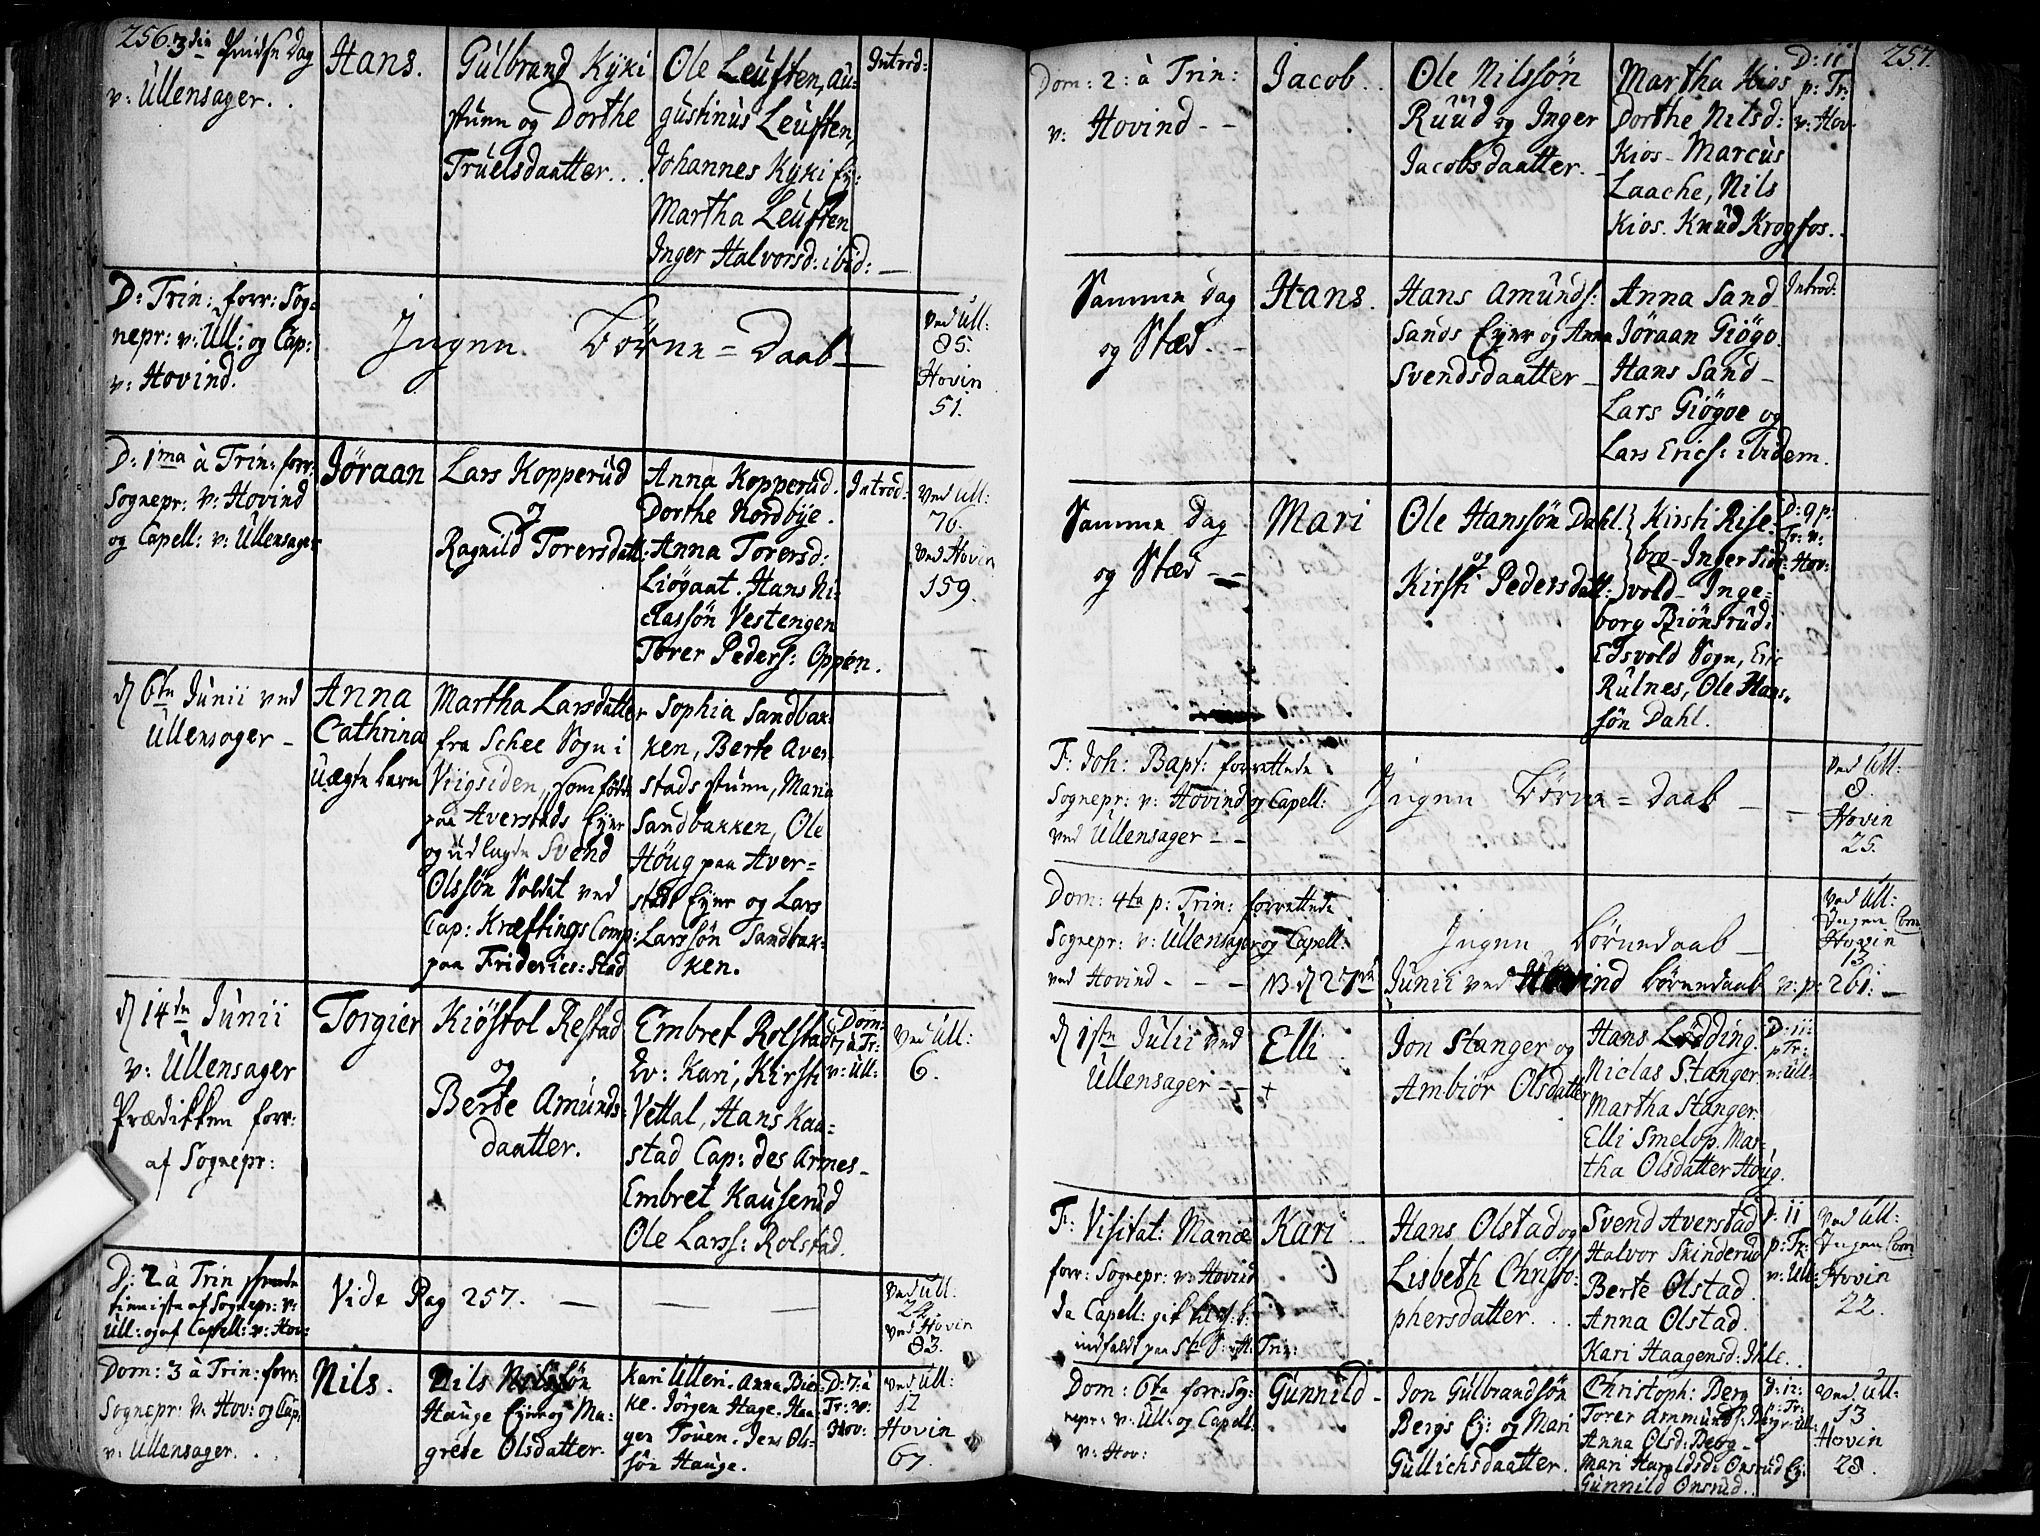 256.
3die Pindse Dag
v: Ullensager. .
Hans.
Gulbrand Kyki
stuen og Dorthe
Truelsdaatter. . .
Ole Leuften, Au-
gustinus Leuften,
Johannes Kyki Ey:
Martha Leuften
Inger Halvorsd: ibid: —
Introd:
D: Trin: forr: Sog-
nepr: v: Ull: og Cap:
v: Hovind.
Ingen Börne = Daab —
Ved Ull:
85.
Hovin
51.
D: 1ma à Trin: forr:
Sognepr: v: Hovind
og Capell: v: Ullensager
Jöraan
Lars Kopperud
og
Ragnild Torersdatt:
Anna Kopperud.
Dorthe Nordbye.
Anna Torersd:
Liögaat. Hans Ni-
classön Vestengen
Torer Peders: Oppen.
Introd:
Ved Ull:
76.
Ved Hovin
159.
d 6te Junii ved
Ullensager —
Anna
Cathrina
Uægte barn
Martha Larsdatter
fra Schee Sogn i
Viigsiden, som födte
paa Averstads Eyer
og udlagde Svend
Olssön Soldat ved
Cap: Kræftings Comp:
paa Friderics: Stad
Sophia Sandbak-
ken, Berte Aver-
stads stuen, Maria
Sandbakken, Ole
Höug paa Aver=
stads Eyer og Lars
Larssön Sandbak-
ken.
d 14de Junii
v: Ullensager
Prædikken forr:
af Sognepr:
Torgier
Kiöstol Restad
og
Berte Amunds-
daatter.
Embret Rolstad
Ev: Kari, Kirsti
Vettal, Hans Kau-
stad Cap: des Armes —
Embret Kauserud
Ole Larss: Rolstad.
Dom:
7 à Tr:
v: Ull:
Ved Ull:
6.
D: 2 à Trin
tienniste af Sognepr: v:
Ull: og af Capell: v: Hov:
Vide Pag 257. — — —
Ved Ull:
Ved Hovin
83.
Dom: 3 à Trin: forr:
Sognepr: v: Hov: og Cap:
v: Ullensager. . .
Nils.
Nils Nilssön
Hauge Eyer og Ma-
grete Olsdatter.
Kari Ulleri. Anna Bier-
ke. Jörgen Hage. Haa-
gen Touen. Jens Ols-
sön Hauge.
D: 7: à
Tr: v:
Hov:
Ved Ull:
12
Hovin
67.
257.
Dom: 2: à Trin:
v: Hovind - -
Jacob. .
Ole Nilssön
Ruud og Inger
Jacobsdaatter. —
Martha Kios
Dorthe Nilsd:
Kios - Marcus
Laache, Nils
Kios. Knud Krogfos. .
D: 11
p: Tr:
v: Hov:
Samme Dag
og Stæd. -
Hans.
Hans Amunds:
Sands Eyer og Anna
Svendsdaatter —
Anna Sand
Jöraan Giögo.
Hans Sand —
Lars Giögoe og
Lars Erics: ibidem.
Introd:
Samme Dag
og Stæd - -
Mari
Ole Hanssön Dahl.
og
Kirsti Pedersdatt:
Kirsti Rise-
broe - Inger Eids-
vold - Inge-
borg Biönsrud i
Edsvold Sogn, Eric
Rulnes, Ole Hans-
sön Dahl.
D: 9 p:
Tr: v:
Hov:
F: Joh: Bapt: forrettede
Sognepr: v: Hovind og Capell:
ved Ullensager - -
Ingen Börne = Daab —
Ved Ull:
8.
Hovin
25.
Dom: 4ta p: Trin: forrettede
Sognepr: v: Ullensager og Capell:
ved Hovind - - -
Ingen Börnedaab —
Ved Ull:
Ingen Com
Hovin
13.
NB d 27de Junii ved Hovind Börnedaab v: p: 261: —
d 1ste Julii ved
Ullensager - -
Elli
+
Jon Stanger og
Ambiör Olsdatter
Hans Lödding.
Niclas Stanger
Martha Stanger.
Elli Smelop. Mar-
tha Olsdatter Houg.
D: 11:
p Tr:
v: Ull:
F: Visitat: Mariæ
forr: Sognepr: v: Hovind
da Capell: gik
indfaldt paa
Trin:
Kari
Hans Olstad og
Lisbeth Christo-
phersdatter. . .
Svend Averstad
Halvor Skinderud
Berte Olstad.
Anna Olstad.
Kari Haagensd: Ihle. .
D: 11
p: Tr:
v: Ull:
Ved Ull:
Ingen Com
Hovin
22.
Dom: 6ta forr: Sog-
nepr: v: Ull: og Capell:
v: Hov:
Gunnild -
Jon Gulbrandsön
Bergs Ey: og Mari
Gullichsdaatter.
Christoph: Berg
Torer Ammunds: Berg
Anna Olsd: Berg -
Mari Haraldsd: Onsrud Ey:
Gunnild Onsrud. .
D: 12:
p: Tr:
v: Ull:
Ved Ull:
13
Hovin
28.